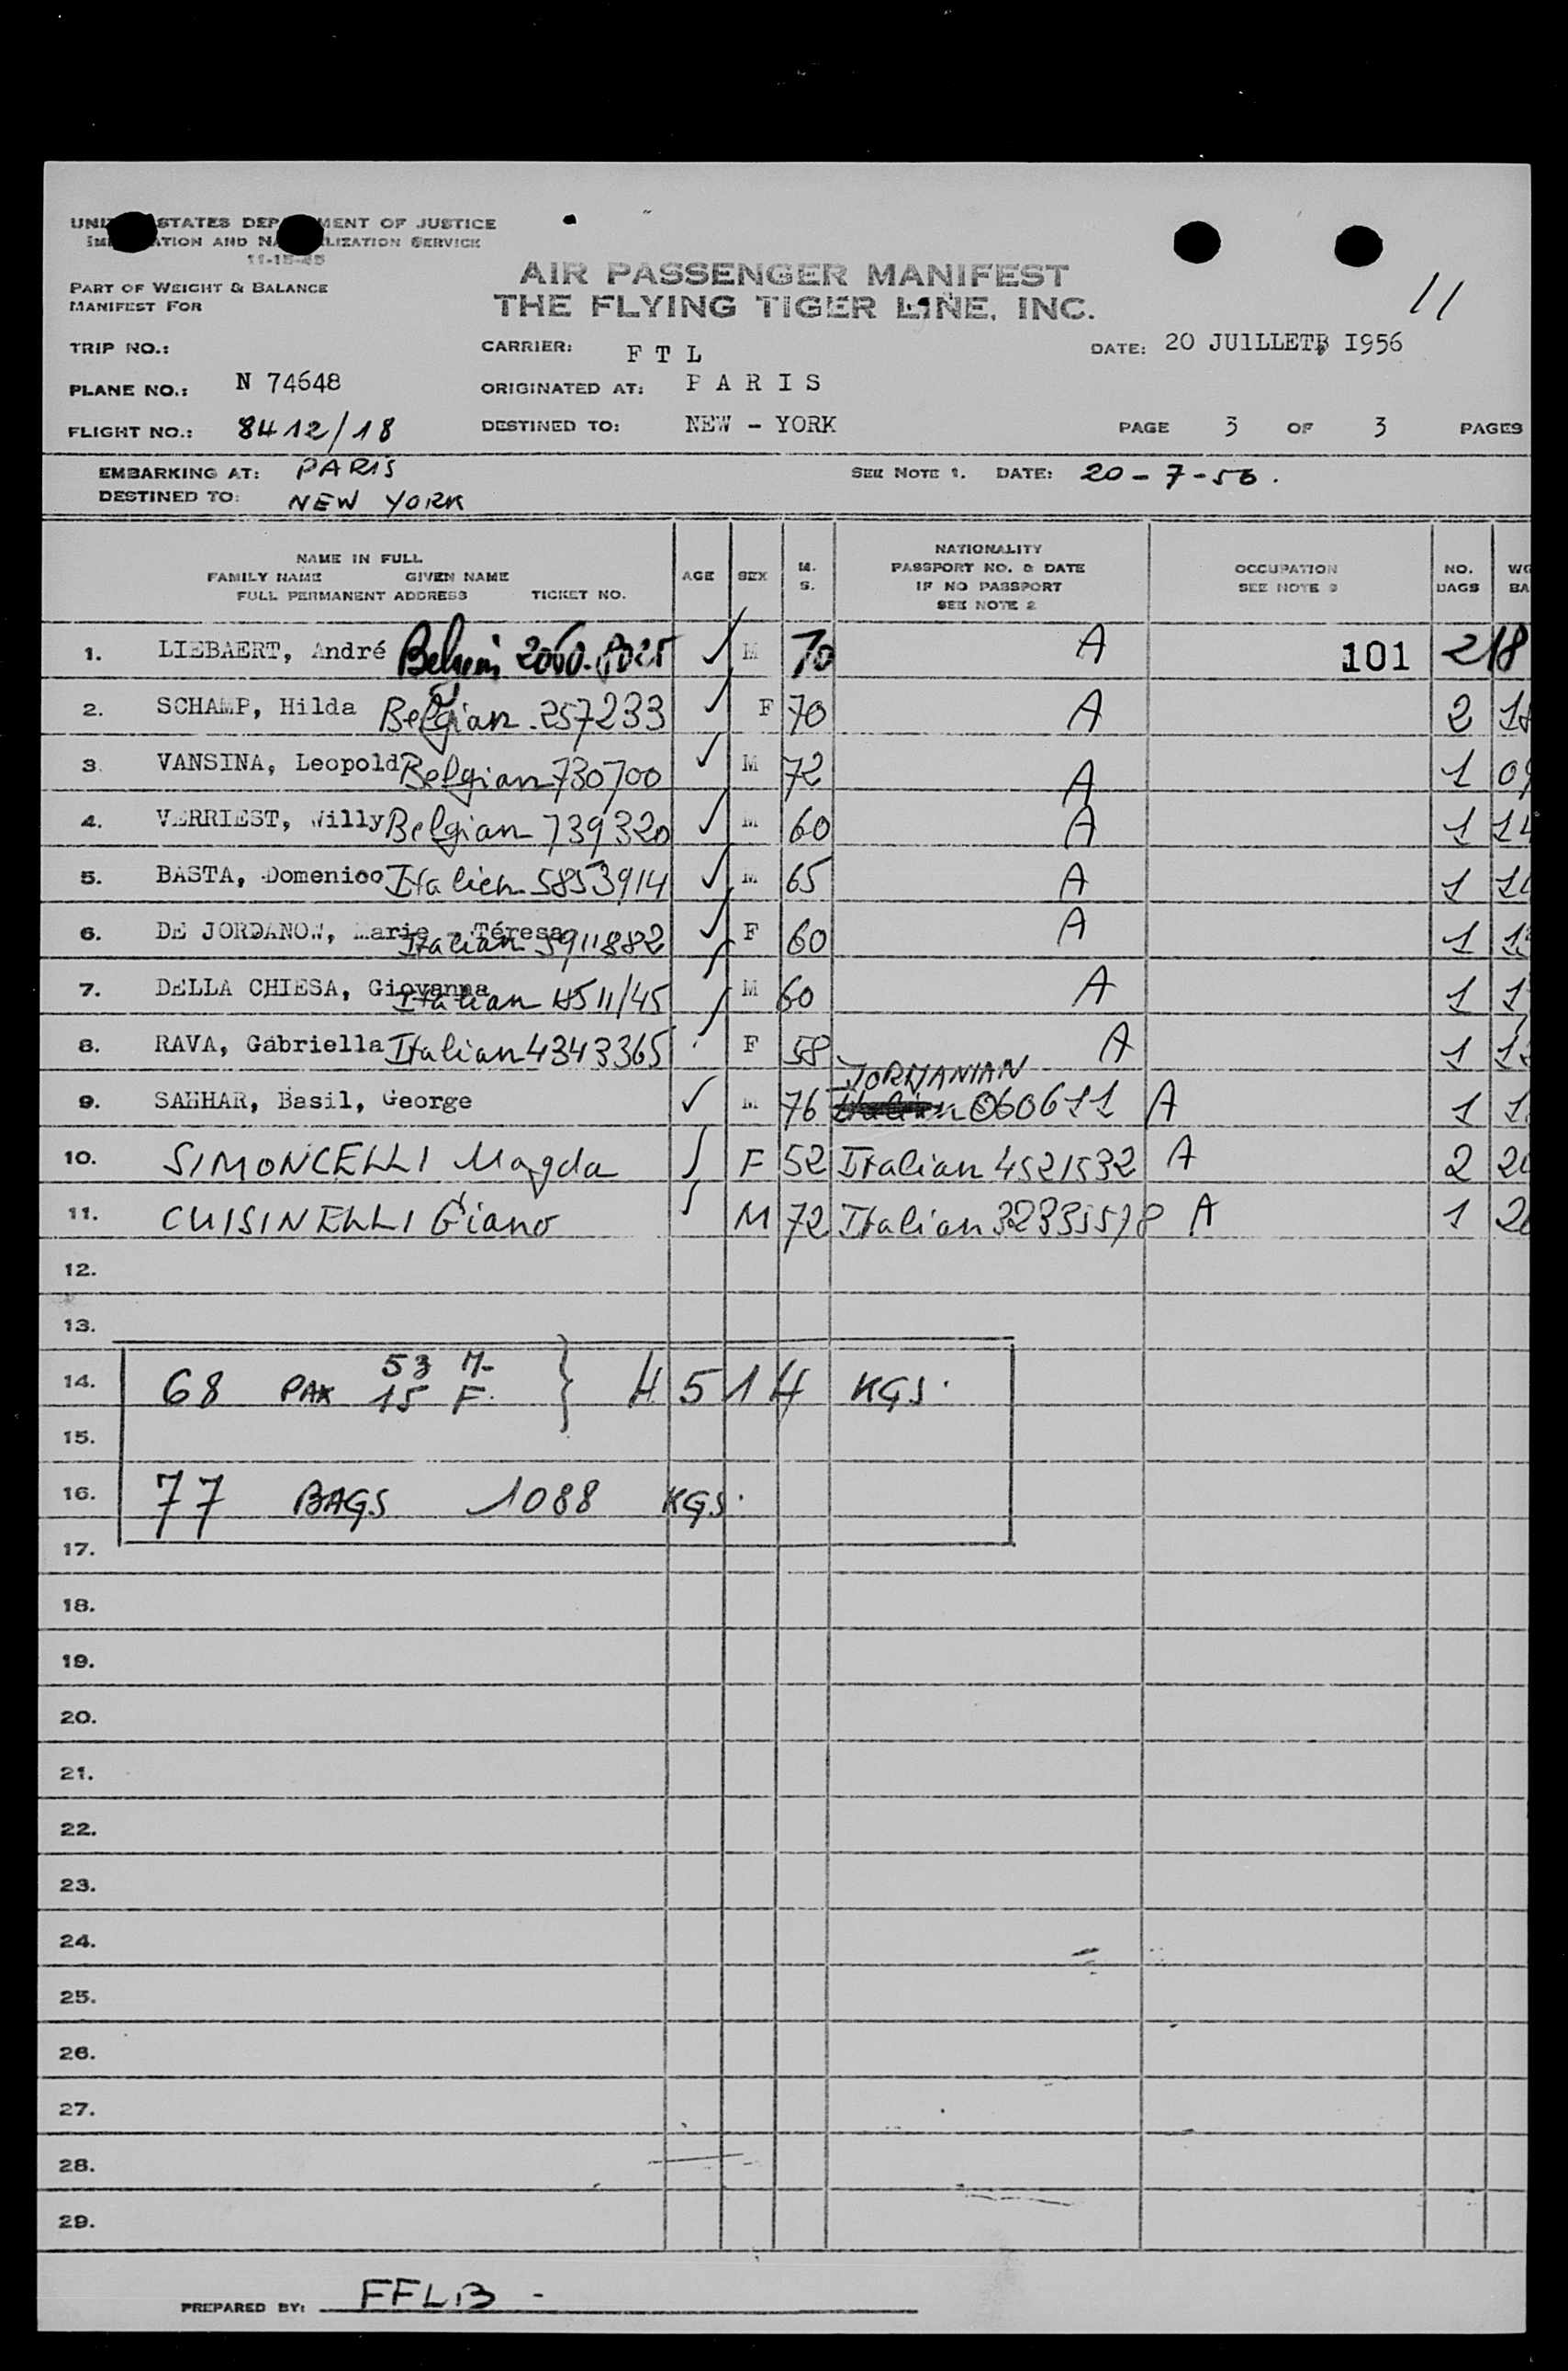 UNITED STATES DEPARTMENT OF JUSTICE
IMMIGRATION AND NATURALIZATION SERVICE
PART OF WEIGHT & BALANCE
MANIFEST FOR
AIR PASSENGER MANIFEST
THE FLYING TIGER LINE, INC.
11
TRIP NO.: CARRIER: F T L DATE: 20 JU1LLET 1956
PLANE NO.: N 74648 ORIGINATED AT: P A R I S
FLIGHT NO.: 8412/18 DESTINED TO: NEW - YORK PAGE 3 OF 3 PAGES
EMBARKING AT: PARIS SEE NOTE 1. DATE: 20-7-56.
DESTINED TO: NEW YORK
NAME IN FULL
FAMILY NAME GIVEN NAME
FULL PERMANENT ADDRESS TICKET NO.
AGE SEX M. S.
NATIONALITY
PASSPORT NO. & DATE
IF NO PASSPORT
SEE NOTE 2
OCCUPATION
SEE NOTE 3
NO. BAGS
1. LIEBAERT, André M 70 A 101 2 18
2. SCHAMP, Hilda Belgian 257233 F 70 A 2
3. VANSINA, Leopold Belgian 730700 M 72 A 1
4. VERRIEST, Willy Belgian 739320 M 60 A 1
5. BASTA, Domenico Italien 5853914 M 65 A 1
6. DE JORDANOW, Marie - Téresa Italian 5911882 F 60 A 1
7. DELLA CHIESA, Giovanna Italian 4511/45 M 60 A 1
8. RAVA, Gabriella Italian 4343365 F 58 A 1
JORDANIAN
9. SAHHAR, Basil, George M 76 060611 A 1
10. SIMONCELLI Magda F 52 Italian 4521532 A 2
11. CUISINELLI Giano M 72 Italian A 1
12.
13.
14. 68 PAX 53 M. 15 F. } 4514 KGS.
15.
16. 77 BAGS 1088 KGS.
17.
18.
19.
20.
21.
22.
23.
24.
25.
26.
27.
28.
29.
PREPARED BY: FFLB -